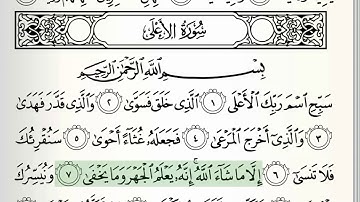 سُورَةُ الأَعْلَىٰ
بِسْمِ اللَّهِ الرَّحْمَٰنِ الرَّحِيمِ
سَبِّحِ اسْمَ رَبِّكَ الْأَعْلَى ١ الَّذِي خَلَقَ فَسَوَّىٰ ٢ وَالَّذِي قَدَّرَ فَهَدَىٰ
٣ وَالَّذِي أَخْرَجَ الْمَرْعَىٰ ٤ فَجَعَلَهُ غُثَاءً أَحْوَىٰ ٥ سَنُقْرِئُكَ
فَلَا تَنسَىٰ ٦ إِلَّا مَا شَاءَ اللَّهُ ۚ إِنَّهُ يَعْلَمُ الْجَهْرَ وَمَا يَخْفَىٰ ٧ وَنُيَسِّرُكَ